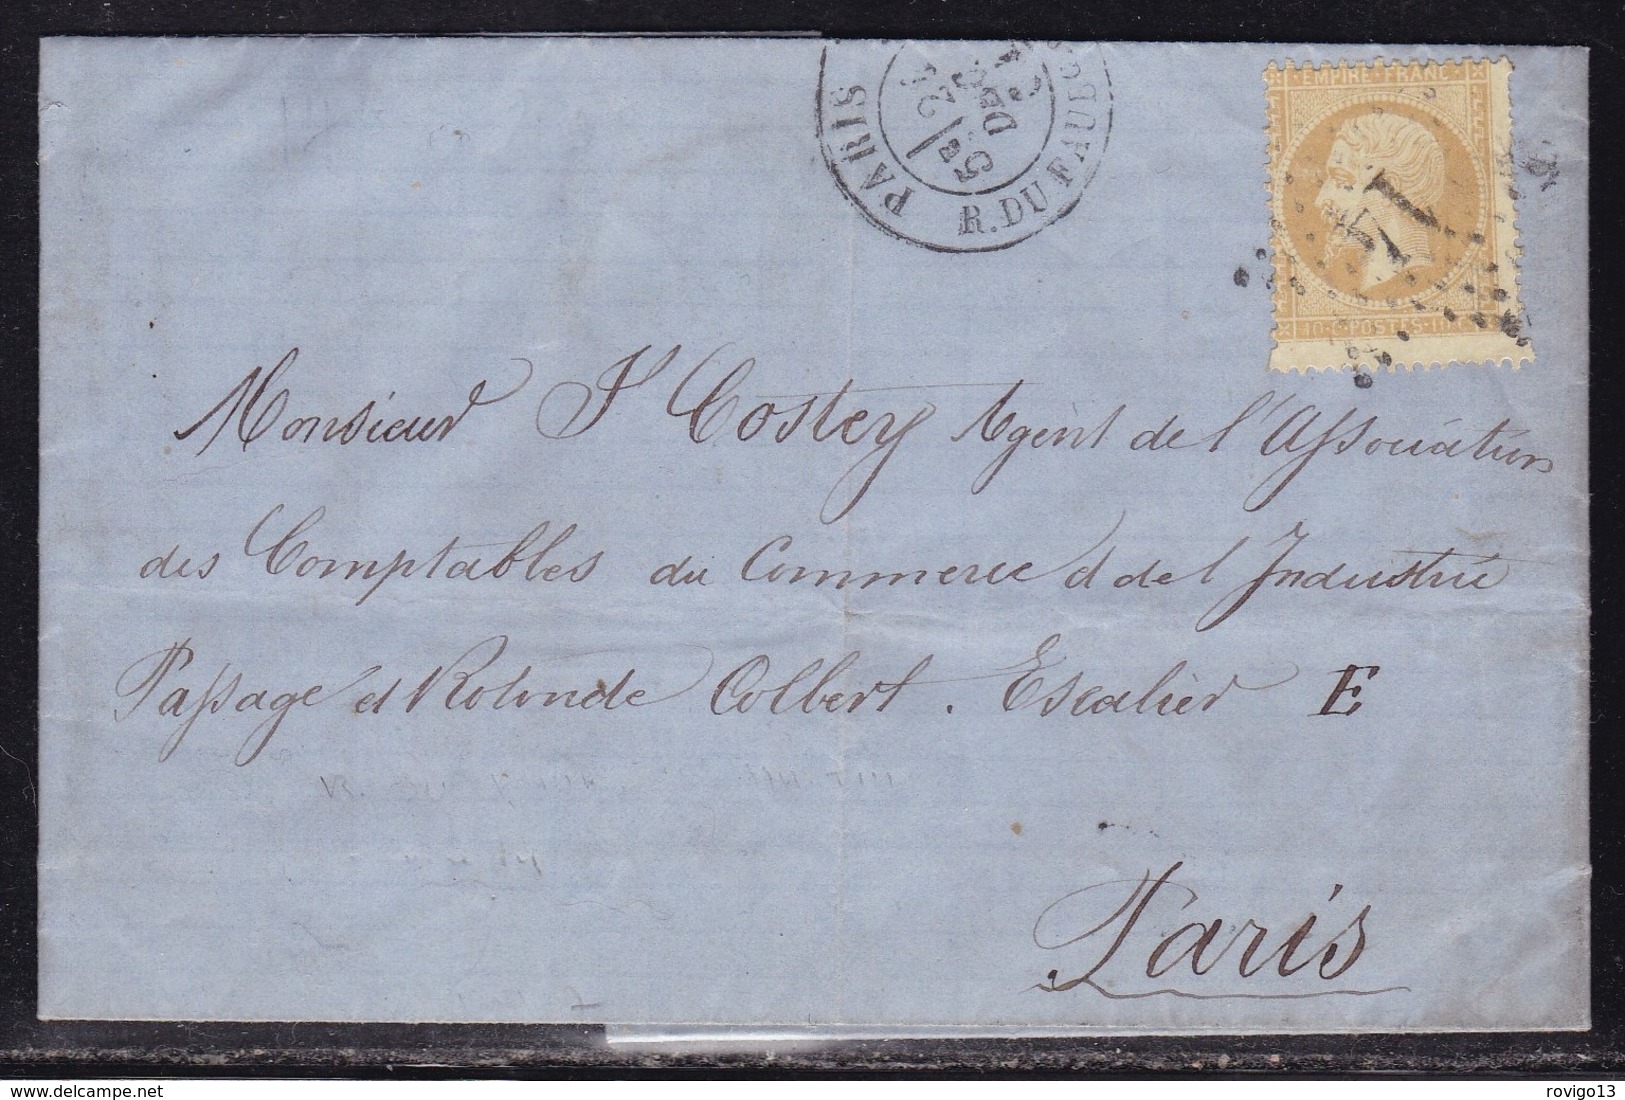 PARIS
R. DU FAUBG
DEC
EMPIRE · FRANC ·
14
10 · C · POSTES · 10 · C
Monsieur St Costey Agent de l'Association
des Comptables du Commerce et de l Industrie
Passage et Rotonde Colbert . Escalier E
Paris
delcampe.net
rovigo13